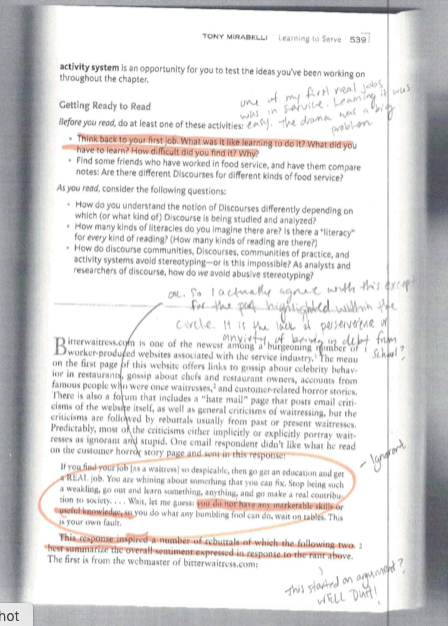 TONY MIRABELLI Learning to Serve 539
activity system is an opportunity for you to test the ideas you've been working on
throughout the chapter.
Getting Ready to Read
one of my first real jobs
was in service. Learning it was
easy. The drama was a big
problem
Before you read, do at least one of these activities:
• Think back to your first job. What was it like learning to do it? What did you
have to learn? How difficult did you find it? Why?
• Find some friends who have worked in food service, and have them compare
notes: Are there different Discourses for different kinds of food service?
As you read, consider the following questions:
• How do you understand the notion of Discourses differently depending on
which (or what kind of) Discourse is being studied and analyzed?
• How many kinds of literacies do you imagine there are? Is there a "literacy"
for every kind of reading? (How many kinds of reading are there?)
• How do discourse communities, Discourses, communities of practice, and
activity systems avoid stereotyping—or is this impossible? As analysts and
researchers of discourse, how do we avoid abusive stereotyping?
So I actually agree with this except
for the part highlighted within the
circle. It is the lack of
of being in debt from
School?
Bitterwaitress.com is one of the newest among a burgeoning number of
worker-produced websites associated with the service industry.¹ The menu
on the first page of this website offers links to gossip about celebrity behav-
ior in restaurants, gossip about chefs and restaurant owners, accounts from
famous people who were once waitresses,² and customer-related horror stories.
There is also a forum that includes a "hate mail" page that posts email criti-
cisms of the website itself, as well as general criticisms of waitressing, but the
criticisms are followed by rebuttals usually from past or present waitresses.
Predictably, most of the criticisms either implicitly or explicitly portray wait-
resses as ignorant and stupid. One email respondent didn't like what he read
on the customer horror story page and sent in this response:
- Ignorant
If you find your job (as a waitress) so despicable, then go get an education and get
a REAL job. You are whining about something that you can fix. Stop being such
a weakling, go out and learn something, anything, and go make a real contribu-
tion to society. . . . Wait, let me guess: you do not have any marketable skills or
useful knowledge, so you do what any bumbling fool can do, wait on tables. This
is your own fault.
This response inspired a number of rebuttals of which the following two
best summarize the overall sentiment expressed in response to the rant above.
The first is from the webmaster of bitterwaitress.com:
This started an argument?
WELL DUH!
hot